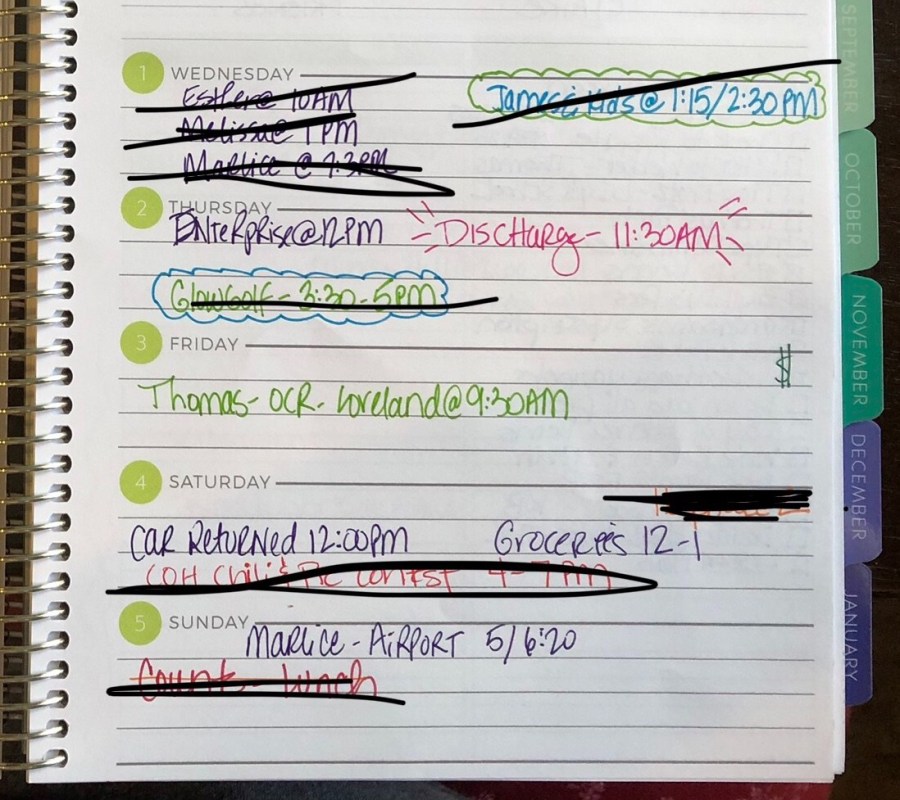 SEPTEMBER
OCTOBER
NOVEMBER
DECEMBER
JANUARY
1 WEDNESDAY
Esther@ 10AM
James & Kids @ 1:15/2:30PM
Melissa@ 1PM
Marlice @ 7:30PM
2 THURSDAY
Enterprise@12PM
Discharge- 11:30AM
GlowGolf- 3:30-5PM
3 FRIDAY
$
Thomas- OCR- Loveland@9:30AM
4 SATURDAY
Car Returned 12:00pm
Groceries 12-1
COH Chili & Pie Contest 4-7PM
5 SUNDAY
Marlice - Airport 5/6:20
Lunch